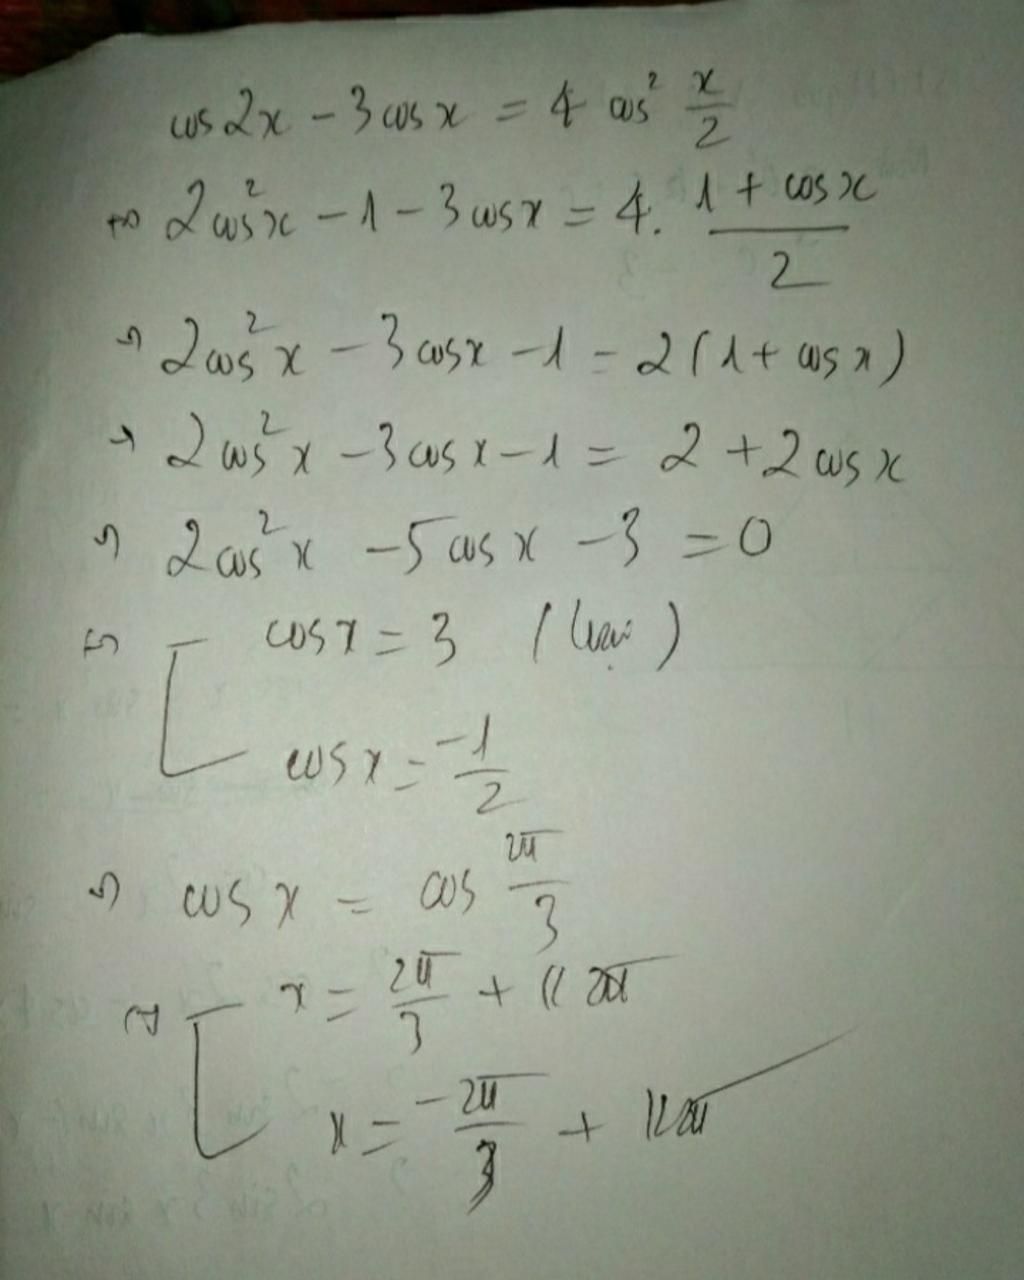 cos 2x - 3 cos x = 4 cos² x/2
⇔ 2cos²x - 1 - 3 cos x = 4. (1 + cos x)/2
⇔ 2cos²x - 3 cos x - 1 = 2(1 + cos x)
⇔ 2cos²x - 3 cos x - 1 = 2 + 2 cos x
⇔ 2cos²x - 5 cos x - 3 = 0
⇔ [ cos x = 3 (loại)
cos x = -1/2
⇔ cos x = cos 2π/3
⇔ [ x = 2π/3 + k2π
x = -2π/3 + k2π